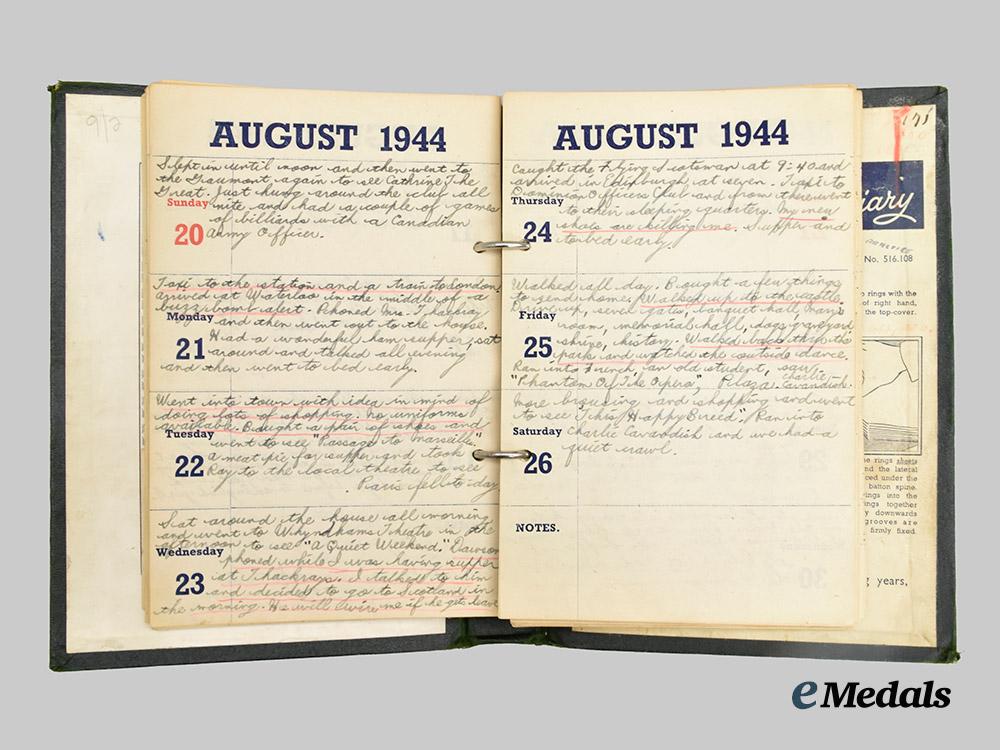 9/2
AUGUST 1944
Slept in until noon and then went to
the Gaumont again to see Cathrine The
Great. Just hung around the club all
Sunday nite and had a couple of games
of billiards with a Canadian
20 Army Officer.
Taxi to the station and a train to London
arrived at Waterloo in the middle of a
buzz bomb alert. Phoned Mrs. Thackray
Monday and then went out to the house.
21 Had a wonderful ham supper, sat
around and talked all evening
and then went to bed early.
Went into town with idea in mind of
doing lots of shopping. No uniforms
available. Bought a pair of shoes and
Tuesday went to see "Passage to Marseille".
22 a meat pie for supper and took
Ray to the local theatre to see
Paris fell to-day
Sat around the house all morning
and went to Whyndhams Theatre in the
afternoon to see "A Quiet Weekend." Dawson
Wednesday phoned while I was having supper
at Thackrays. I talked to him
23 and decided to go to Scotland in
the morning. He will wire me if he gets leave
AUGUST 1944
Caught the Flying Scotsman at 9:40 and
arrived in Edinburgh at seven. Taxi to
Dominion Officers Club and from there went
Thursday to their sleeping quarters. My new
24 shoes are killing me. Supper and
to bed early.
Walked all day. Bought a few things
to send home. Walked up to the castle.
up, seven gates, banquet hall, Marys
Friday room, memorial hall, dogs graveyard
shrine, history. Walked back thru the
25 park and watched the outside dance.
Ran into French an old student, saw
"Phantom Of The Opera", Plaza. Charlie Cavandish.
More browsing and shopping and went
to see "This Happy Breed". Ran into
Saturday Charlie Cavandish and we had a
quiet crawl.
26
NOTES.
iary
No. 516.108
o rings with the
of right hand,
the top-cover.
e rings sheets
nd the lateral
ced under the
batton spine.
ings into the
ings together
y downwards
grooves are
firmly fixed.
g years,
eMedals